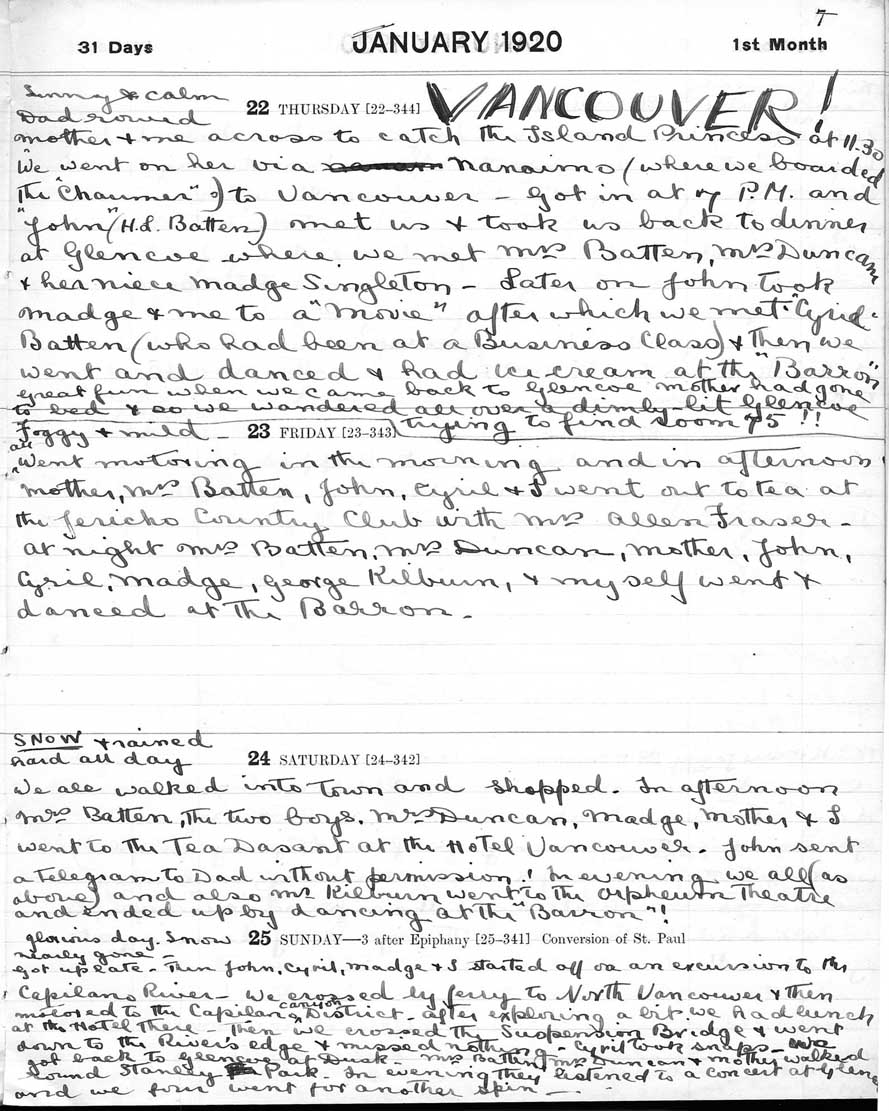 7
31 Days JANUARY 1920 1st Month
Sunny & calm
22 THURSDAY [22-344] VANCOUVER!
Dad rowed
mother & me across to catch the Island Princess at 11.30
We went on her via Nanaimo (where we boarded
the "Chaumer") to Vancouver – Got in at 7 P.M. and
"John" (H.L. Batten) met us & took us back to dinner
at Glencoe where we met Mrs Batten, Mrs Duncan
& her niece Madge Singleton – Later on John took
Madge & me to a "Movie" after which we met "Cyril"
Batten (who had been at a Business Class) & then we
went and danced & had ice cream at the "Barron"
great fun when we came back to Glencoe mother had gone
to bed & so we wandered all over a dimly-lit Glencoe
trying to find room 75!!
Foggy & mild –
23 FRIDAY [23-343]
all
Went motoring in the morning and in afternoon
Mother, Mrs Batten, John, Cyril & I went out to tea at
the Jericho Country Club with Mrs Allen Fraser –
At night Mrs Batten, Mrs Duncan, Mother, John,
Cyril, Madge, George Kilburn, & myself went &
danced at the Barron –
SNOW & rained
hard all day
24 SATURDAY [24-342]
We all walked into town and shopped. In afternoon
Mrs Batten, the two boys, Mrs Duncan, Madge, Mother & I
went to the Tea Dasant at the Hotel Vancouver. John sent
a telegram to Dad without permission! In evening we all (as
above) and also Mr Kilburn went to the Orpheum Theatre
and ended up by dancing at the "Barron"!
glorious day. Snow
25 SUNDAY—3 after Epiphany [25-341] Conversion of St. Paul
nearly gone –
Got up late. Then John, Cyril, Madge & I started off on an excursion to the
Capilano River – We crossed by ferry to North Vancouver & then
canyon
motored to the Capilano District – After exploring a bit we had lunch
at the Hotel there – Then we crossed the Suspension Bridge & went
down to the River's edge & missed nothing – Cyril took snaps – We
got back to Glencoe at Dusk – Mrs Batten, Mrs Duncan & Mother walked
round Stanley Park. In evening they listened to a concert at Glencoe
and we four went for another spin –